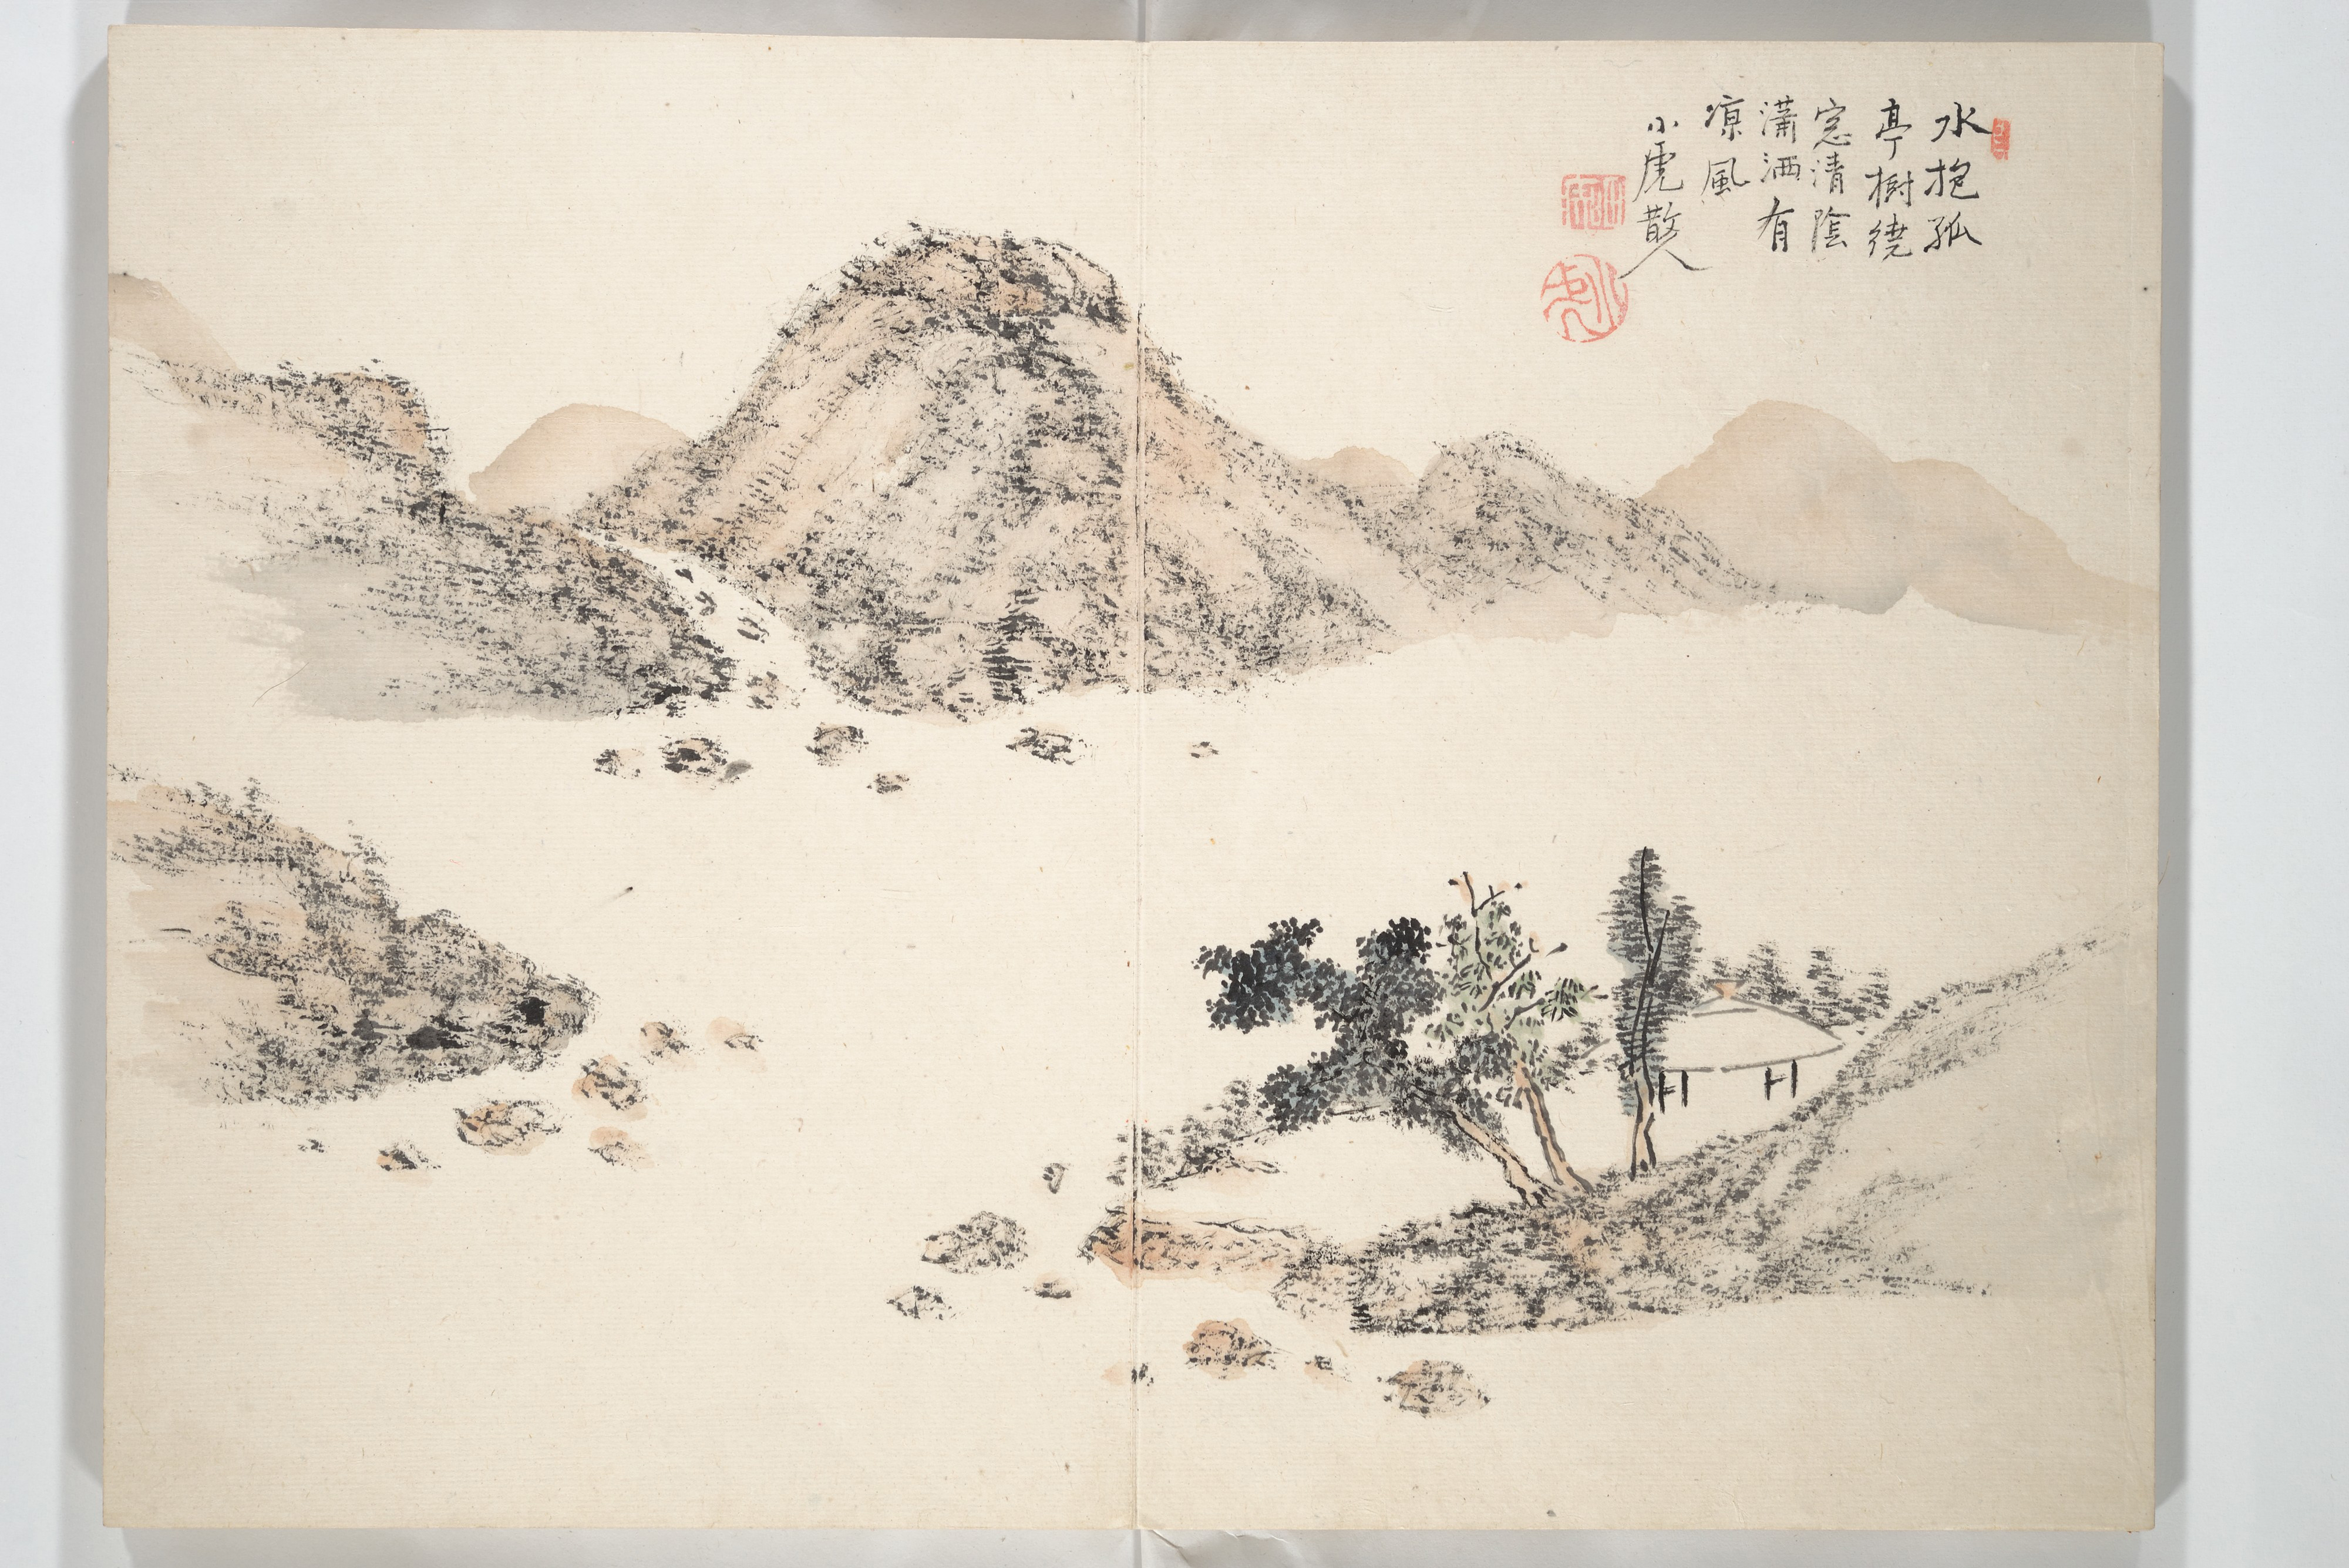 水抱孤
亭樹繞
窓清陰
瀟洒有
凉風
小虎散人